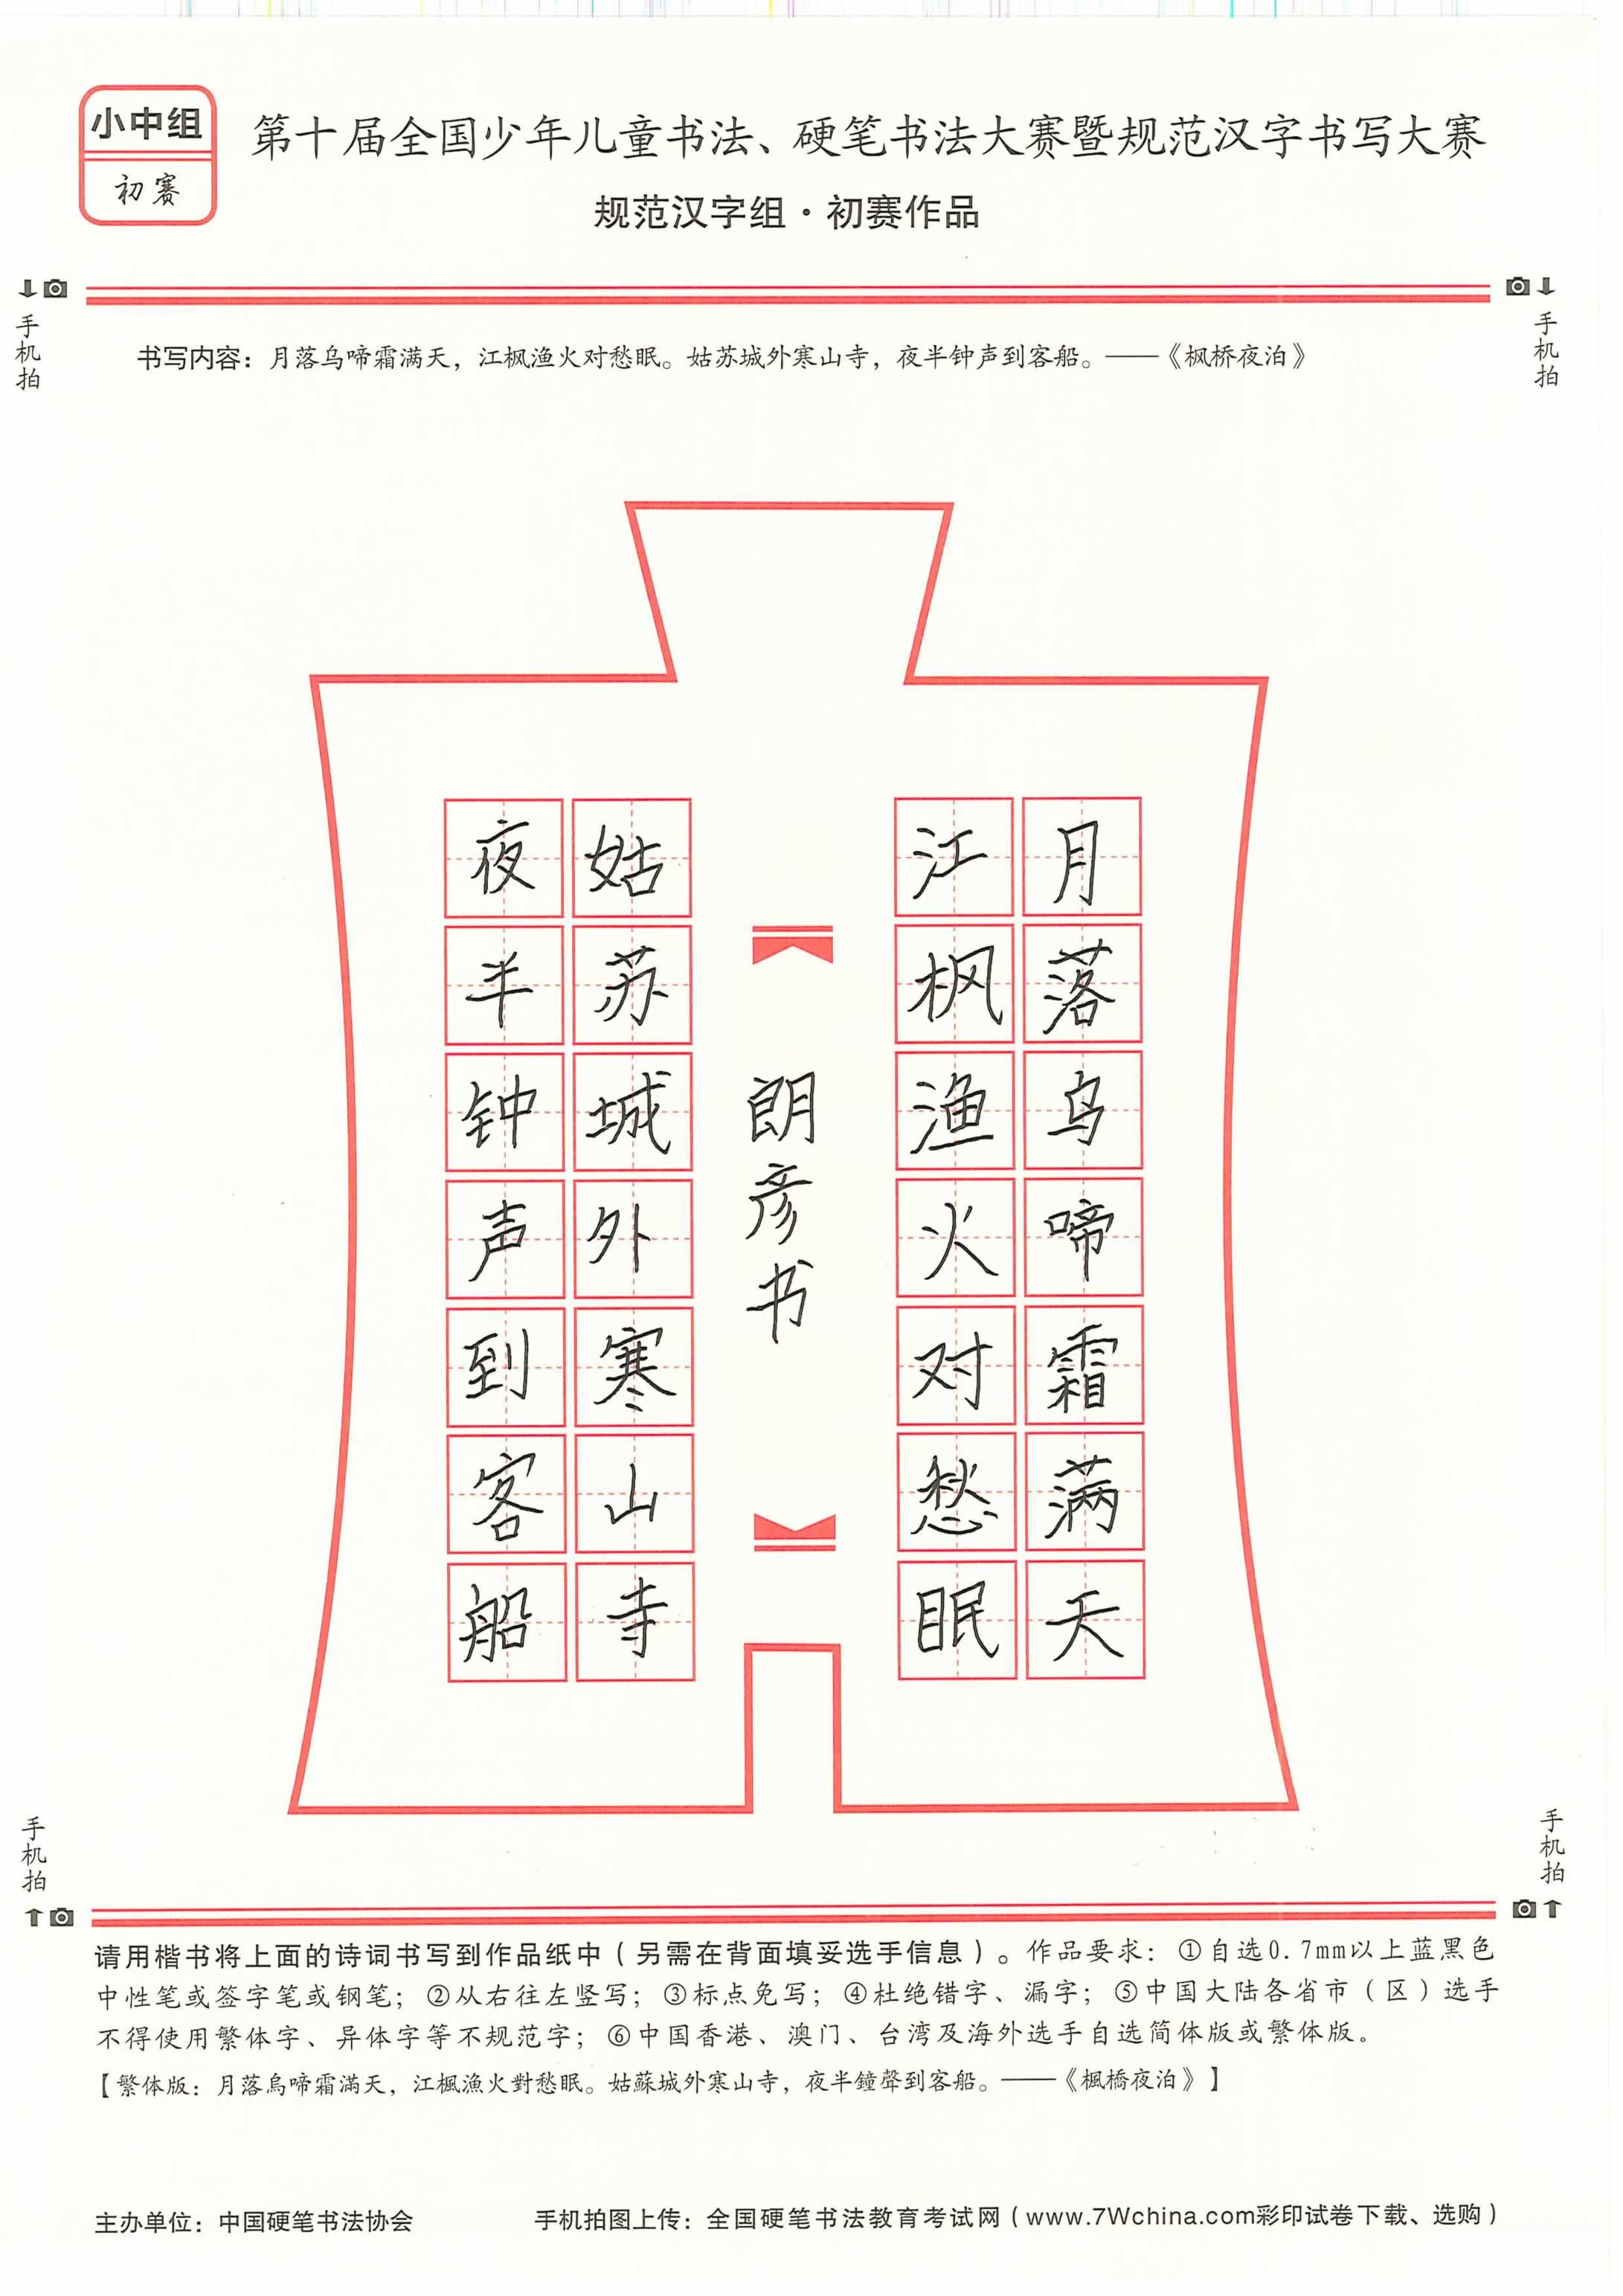 小中组
初赛
第十届全国少年儿童书法、硬笔书法大赛暨规范汉字书写大赛
规范汉字组·初赛作品
手机拍
手机拍
书写内容：月落乌啼霜满天，江枫渔火对愁眠。姑苏城外寒山寺，夜半钟声到客船。——《枫桥夜泊》
月落乌啼霜满天
江枫渔火对愁眠
朗彦书
姑苏城外寒山寺
夜半钟声到客船
手机拍
手机拍
请用楷书将上面的诗词书写到作品纸中（另需在背面填妥选手信息）。作品要求：①自选0.7mm以上蓝黑色
中性笔或签字笔或钢笔；②从右往左竖写；③标点免写；④杜绝错字、漏字；⑤中国大陆各省市（区）选手
不得使用繁体字、异体字等不规范字；⑥中国香港、澳门、台湾及海外选手自选简体版或繁体版。
【繁体版：月落烏啼霜滿天，江楓漁火對愁眠。姑蘇城外寒山寺，夜半鐘聲到客船。——《楓橋夜泊》】
主办单位：中国硬笔书法协会
手机拍图上传：全国硬笔书法教育考试网（www.7Wchina.com彩印试卷下载、选购）